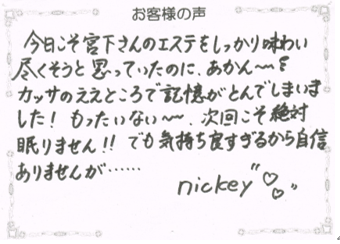 お客様の声
今日こそ宮下さんのエステをしっかり味わい
尽くそうと思っていたのに、あかん〜〜
カッサのええところで記憶がとんでしまいま
した！もったいない〜〜。次回こそ絶対
眠りません!!でも気持ち良すぎるから自信
ありませんが……
nickey"♡♡"